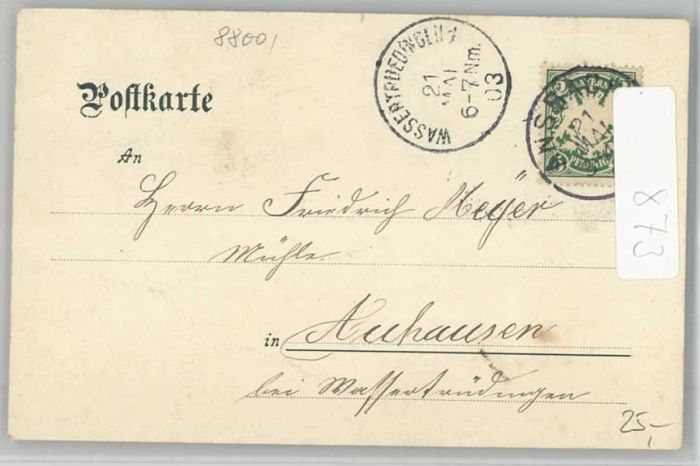 8800,
Postkarte
WASSERTRUEDINGEN
21
MAI
6-7 Nm.
03
21
MAI
PFENNIG
An
Herrn Friedrich Meyer
Mühle
in Auhausen
bei Wassertrüdingen
873
25,-